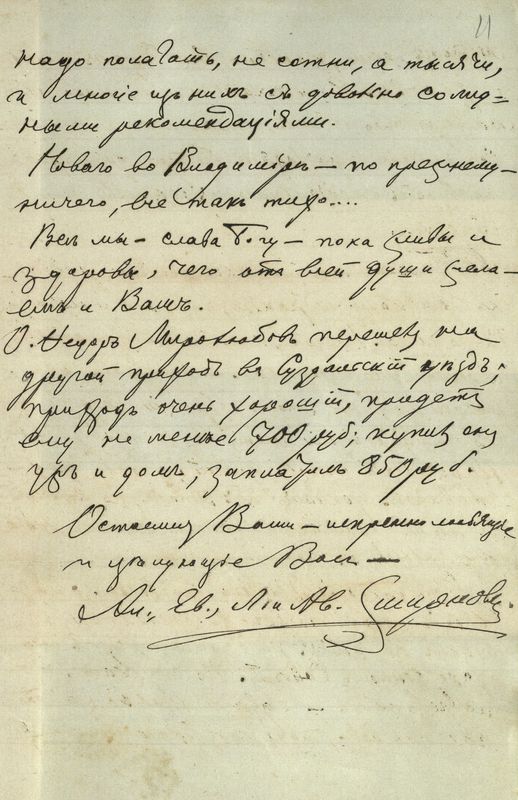 11
надо полагать, не сотни, а тысячи,
и многіе изъ нихъ съ довольно солид=
ными рекомендаціями.
Новаго во Владимірѣ – по прежнему –
ничего, все такъ тихо....
Всѣ мы – слава Богу – пока живы и
здоровы, чего отъ всей души жела-
емъ и Вамъ.
О. Ѳедоръ Миролюбовъ перешелъ на
другой приходъ въ Суздальскій уѣздъ;
приходъ очень хорошій, придетъ
ему не менѣе 700 руб; купилъ онъ
ужъ и домъ, заплатилъ 850 руб.
Остаемся Ваши – искренно любящіе
и цѣлующіе Васъ –
Ал., Ев., Л и Ав. Смирновы